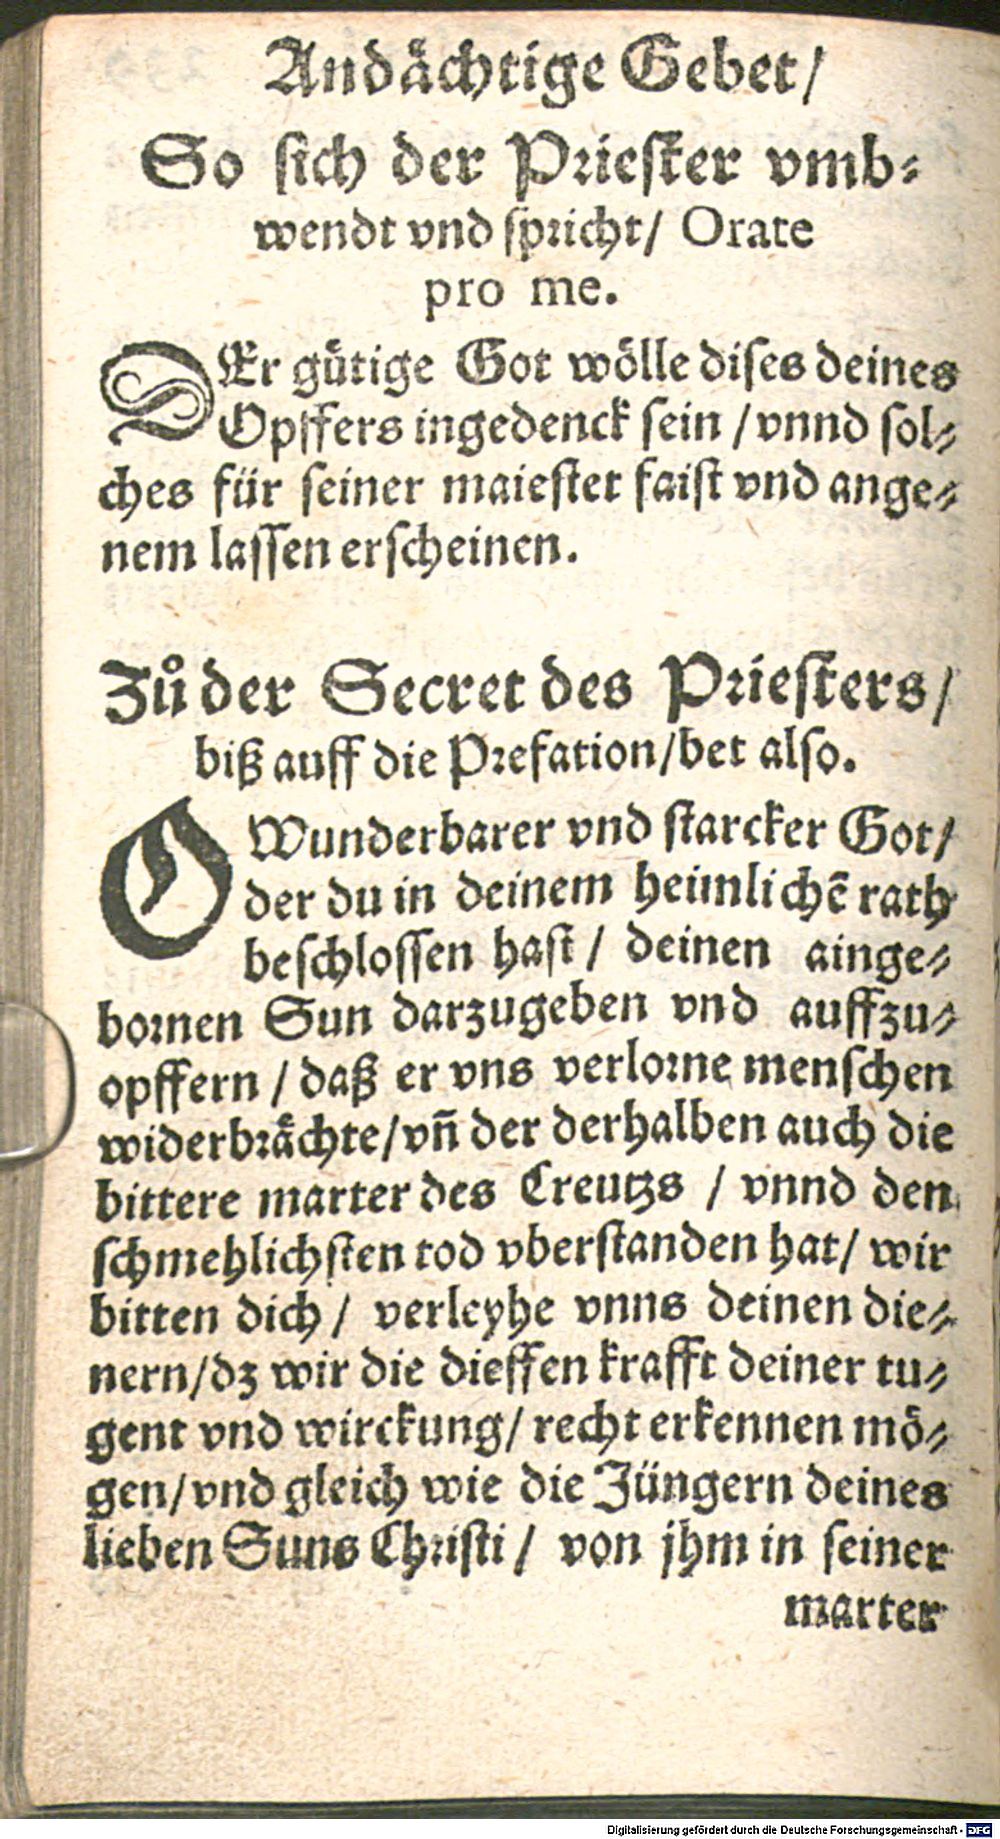 Andaͤchtige Gebet/
So ſich der Prieſter vmb⸗
wendt vnd ſpricht/ Orate
pro me.
DEr guͤtige Got woͤlle diſes deines
Opffers ingedenck ſein /vnnd ſol⸗
ches fuͤr ſeiner maieſtet faiſt vnd ange⸗
nem laſſen erſcheinen.
Zuͦ der Secret des Prieſters/
biß auff die Prefation/bet alſo.
O Wunderbarer vnd ſtarcker Got/
der du in deinem heimlichē rath
beſchloſſen haſt / deinen ainge⸗
bornen Sun darzugeben vnd auffzu⸗
opffern / daß er vns verlorne menſchen
widerbraͤchte/vn̄ der derhalben auch die
bittere marter des Creutzs / vnnd den
ſchmehlichſten tod vberſtanden hat/ wir
bitten dich / verleyhe vnns deinen die⸗
nern/dz wir die dieffen krafft deiner tu⸗
gent vnd wirckung/ recht erkennen moͤ⸗
gen/vnd gleich wie die Jüngern deines
lieben Suns Chriſti / von jhm in ſeiner
marter
Digitalisierung gefördert durch die Deutsche Forschungsgemeinschaft - DFG